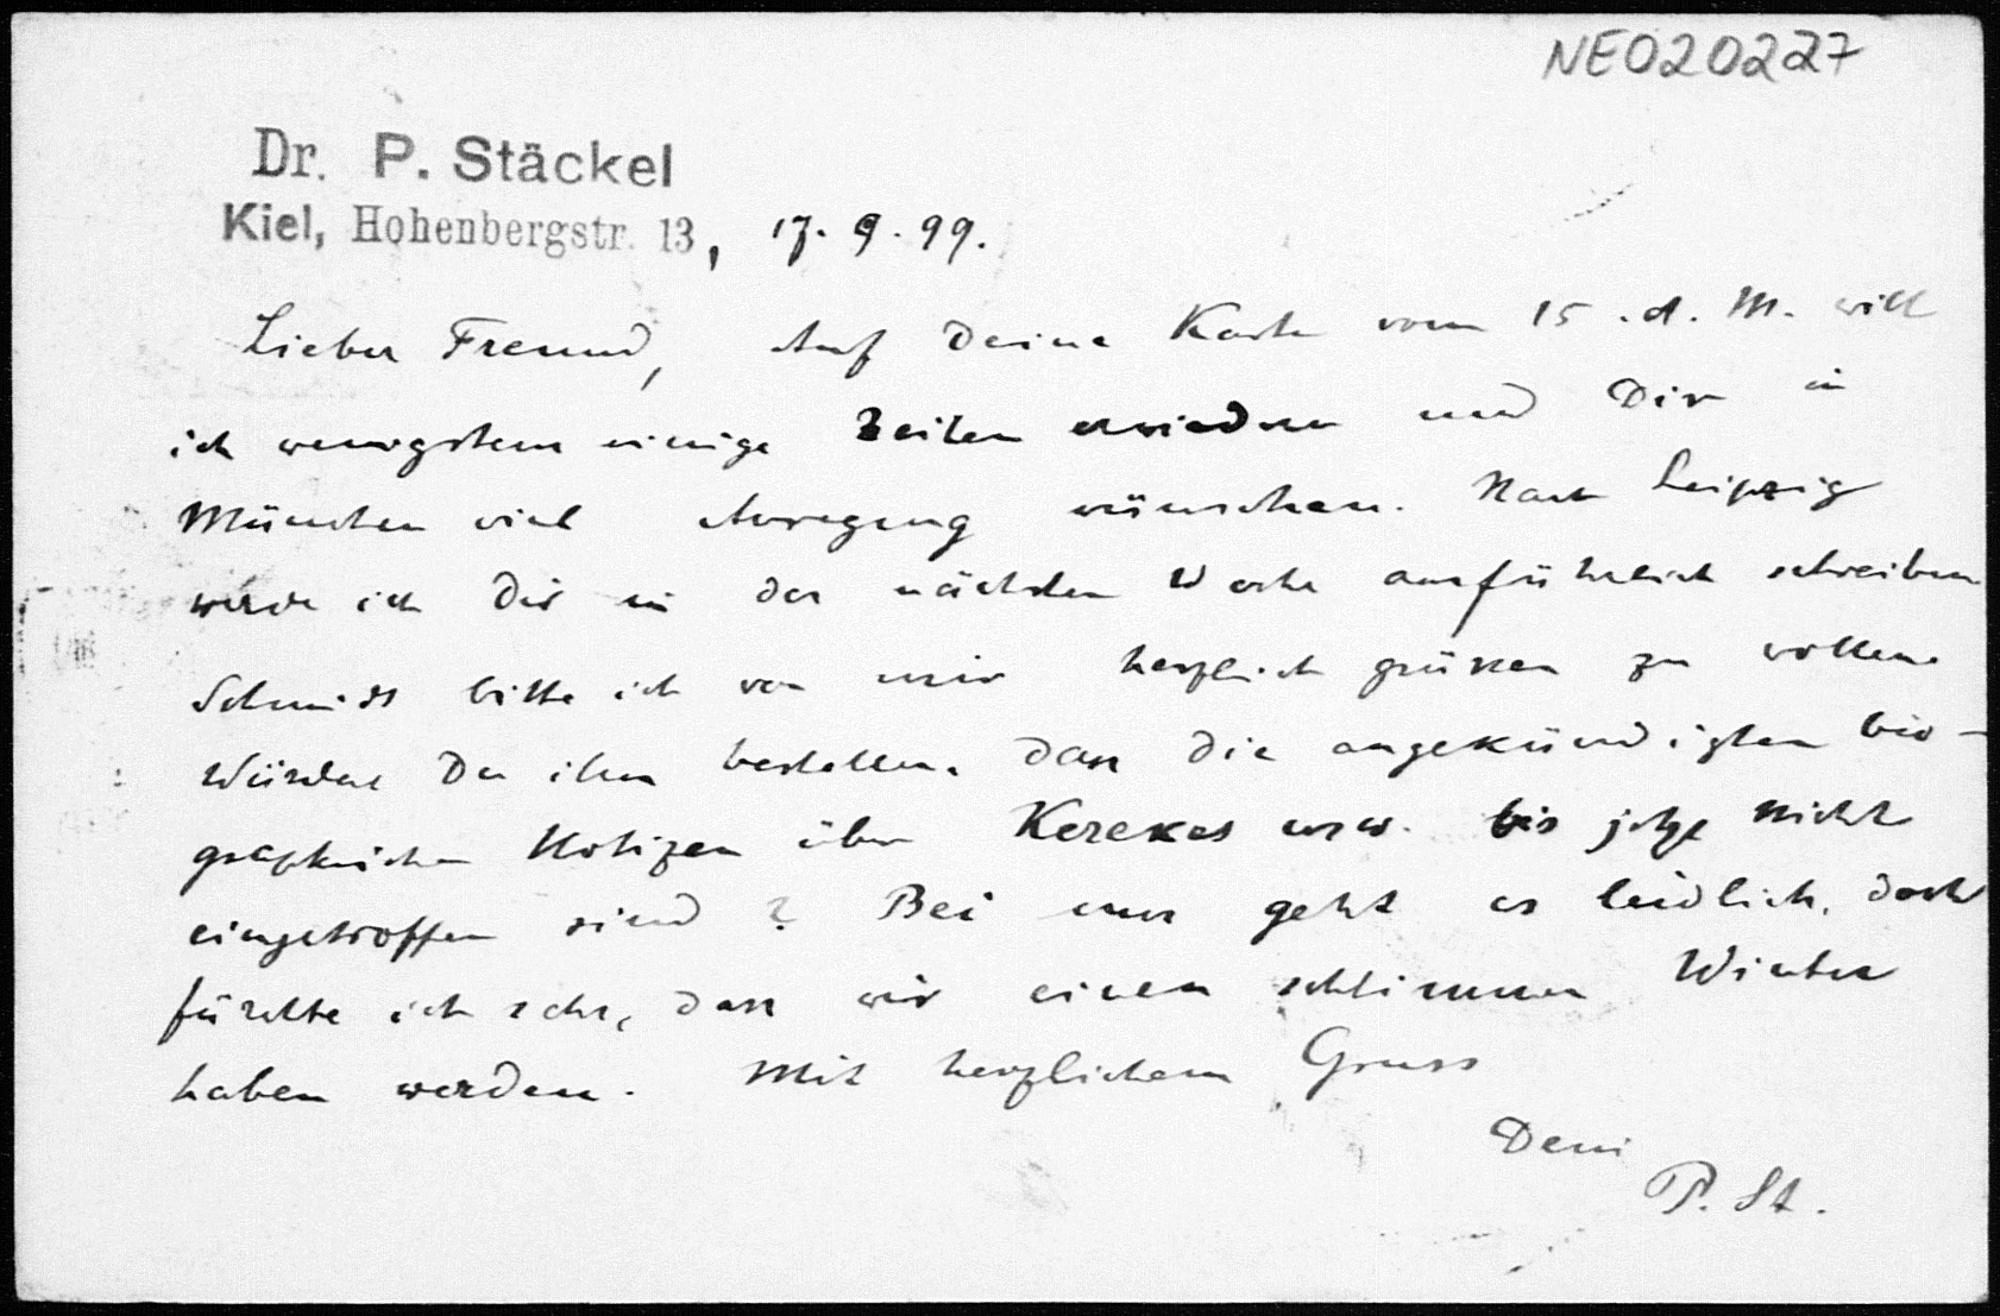 NE020227
Dr. P. Stäckel
Kiel, Hohenbergstr. 13, 17. 9. 99.
Lieber Freund, Auf Deine Karte vom 15. d. M. will
ich wenigstens einige Zeilen erwiedern und Dir in
München viel Anregung wünschen. Nach Leipzig
werde ich Dir in der nächsten Woche ausführlich schreiben
Schmidt bitte ich von mir herzlich grüssen zu wollen.
Würdest Du ihm bestellen, dass die angekündigten bio-
graphischen Notizen über Kerekes usw. bis jetzt nicht
eingetroffen sind? Bei uns geht es leidlich, doch
fürchte ich sehr, dass wir einen schlimmen Winter
haben werden. Mit herzlichem Gruss
Dein
P. St.